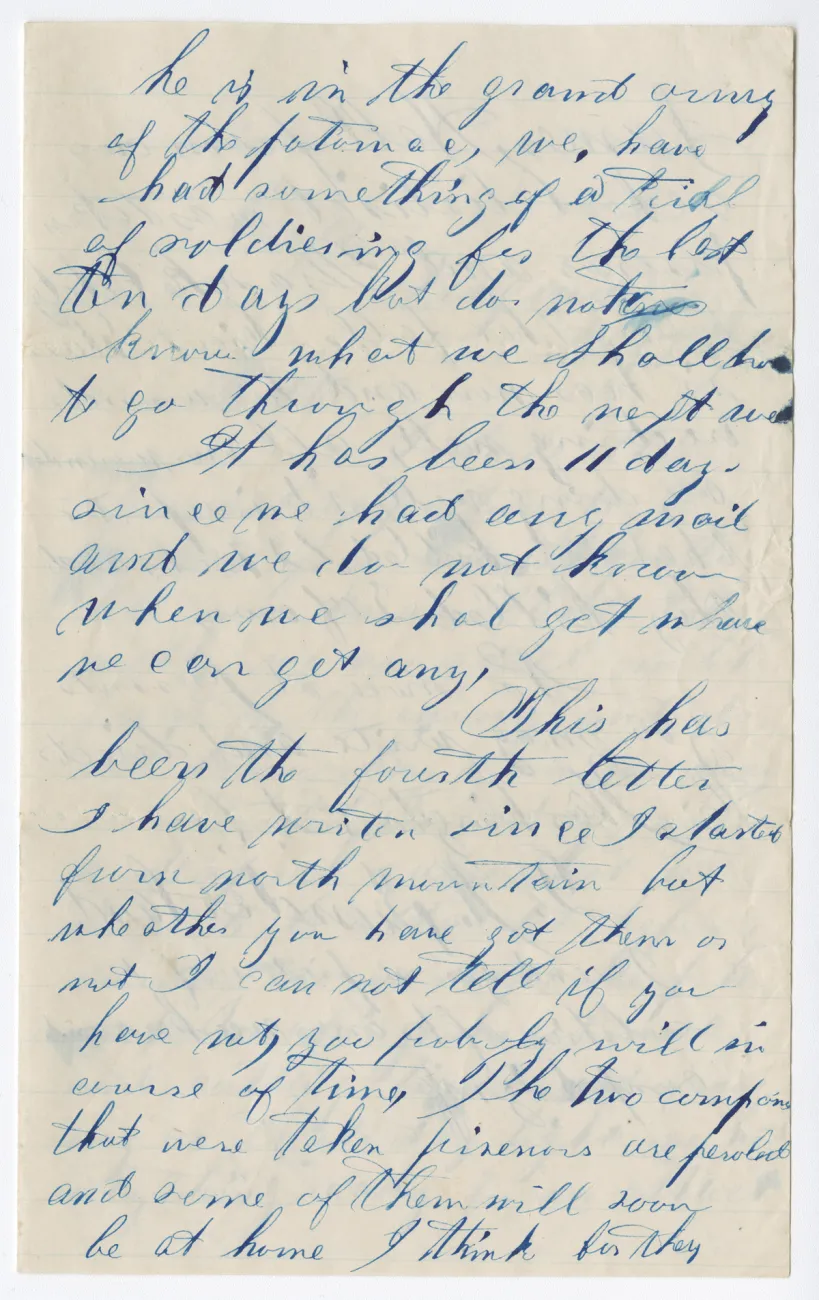 he is in the grand army
of the potomac, we, have
had something of a trial
of soldiering for the last
ten days but do not
know what we shall ha
to go through the next we
It has been 11 days
since we had any mail
and we do not know
when we shal get where
we can get any,
This has
been the fourth letter
I have writen since I started
from north mountain but
wheather you have got them or
not I can not tell if you
have not, you probely will in
course of time, The two compan
that were taken prisenors are peroled
and some of them will soon
be at home I think for they